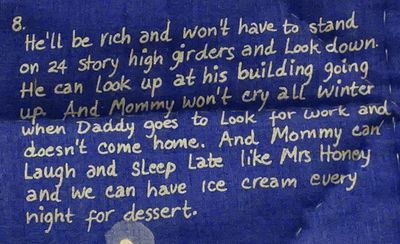 8.
He'll be rich and won't have to stand
on 24 story high girders and Look down.
He can look up at his building going
up. And Mommy won't cry all winter
when Daddy goes to Look for work and
doesn't come home. And Mommy can
Laugh and Sleep Late like Mrs Honey
and we can have Ice cream every
night for dessert.